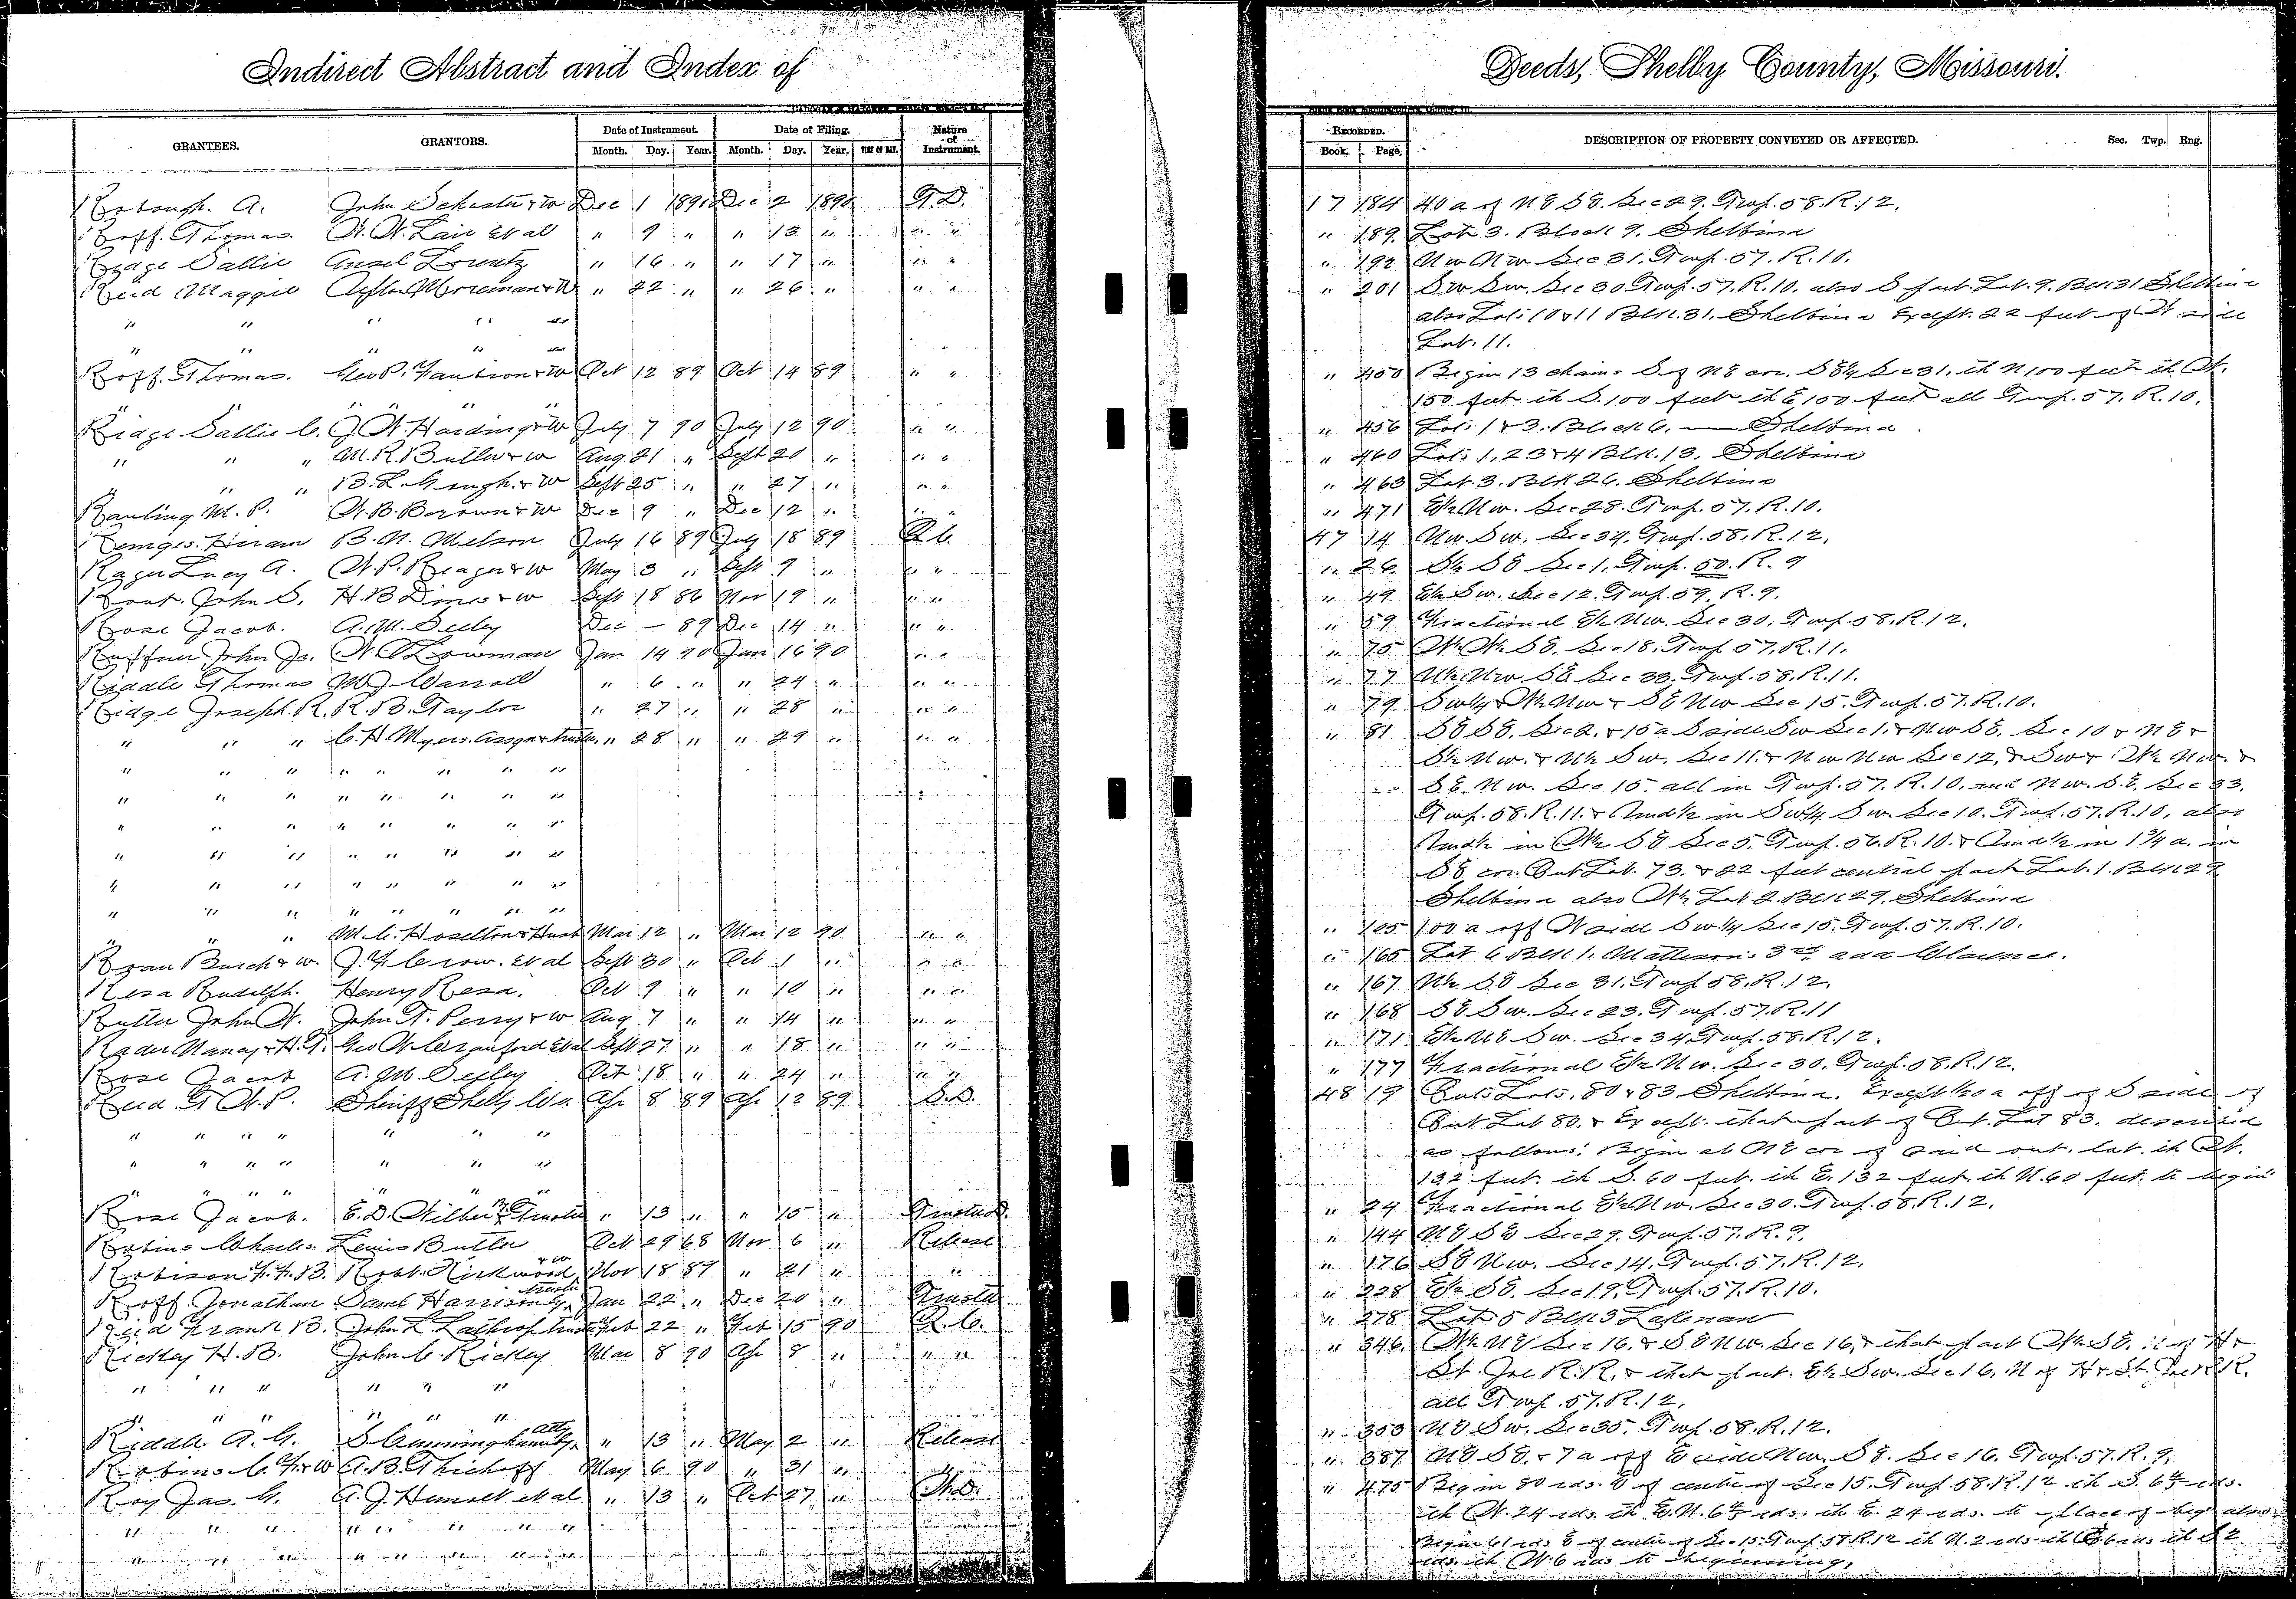 Indirect Abstract and Index of Deeds, Shelby County, Missouri.
GRANTEES. GRANTORS. Date of Instrument. Date of Filing. Nature of Instrument. RECORDED. DESCRIPTION OF PROPERTY CONVEYED OR AFFECTED. Sec. Twp. Rng.
Month. Day. Year. Month. Day. Year. Book. Page.
A. John Schuster & w Dec 1 1890 Dec 2 1890 T.D. 17 184 40 a of NE SE. Sec 29. Twp. 58. R. 12.
Roff. Thomas. W. W. Lair et al " 9 " " 13 " " " " 189 Lot 3. Block 9. Shelbina
Ridge Sallie " 16 " " 17 " " " " 192 Nw Nw Sec 31. Twp. 57. R. 10.
Reid Maggie & W " 22 " " 26 " " " " 201 Sw Sw. Sec 30 Twp. 57. R. 10. also S feet Lot. 9. Blk 31 Shelbina
" " " " " also Lots 10 & 11 Blk. 31. Shelbina Except. 22 feet of W side
" " " " " Lot. 11.
Roff. Thomas. Geo P. & w Oct 12 89 Oct 14 89 " " " 450 Begin 13 chains S of NE cor. SE 1/4 Sec 31. th N 100 feet th W.
" " " " 150 feet th S. 100 feet th E 150 feet all Twp. 57. R. 10.
Ridge Sallie C. J. W. Harding & w July 7 90 July 12 90 " " " 456 Lots 1 & 3. Block 6. — Shelbina
" " " M. R. Butler & w Aug 21 " Sept 20 " " " " 460 Lots 1, 2 3 & 4 Blk. 13. Shelbina
" " " B. L. & w Sept 25 " " 27 " " " " 463 Lot. 3. Blk 26. Shelbina
M. P. W. B. & w Dec 9 " Dec 12 " " " " 471 E 1/2 Nw. Sec 28. Twp. 57. R. 10.
Hiram B. N. Melson July 16 89 July 18 89 Q.C. 47 14 Nw. Sw. Sec 34. Twp. 58. R. 12.
Lucy A. W. P. Reager & w May 3 " Sept 9 " " " " 26 S 1/2 SE Sec 1. Twp. 50. R. 9
John S. H. B & w Sept 18 86 Nov 19 " " " " 49 E 1/2 Sw. Sec 12. Twp. 59. R. 9.
Rose Jacob. A. M. Seeley Dec — 89 Dec 14 " " " " 59 Fractional E 1/2 Nw. Sec 30. Twp. 58. R. 12.
Ruffner John Jr. Bowman Jan 14 90 Jan 16 90 " " " 75 W 1/2 W 1/2 SE. Sec 18. Twp 57. R. 11.
Riddle Thomas M. J. Worrell " 6 " " 24 " " " " 77 N 1/2 Nw. SE Sec 33. Twp. 58. R. 11.
Ridge Joseph. R. R. B. Taylor " 27 " " 28 " " " " 79 Sw 1/4 & W 1/2 Nw & SE Nw Sec 15. Twp. 57. R. 10.
" " " C. H. Myers. Assgn & trustee " 28 " " 29 " " " " 81 SE SE. Sec 2. & 15 a S side Sw Sec 1. & Nw SE. Sec 10 & NE &
" " " " " " " " S 1/2 Nw. & N 1/2 Sw. Sec 11. & Nw Nw Sec 12. & Sw & W 1/2 Nw. &
" " " " " " " " SE. Nw. Sec 15. all in Twp. 57. R. 10. and Nw. SE. Sec 33.
" " " " " " " " Twp. 58. R. 11. & Und 1/2 in Sw 1/4 Sw. Sec 10. Twp. 57. R. 10. also
" " " " " " " " Und 1/2 in W 1/2 SE Sec 5. Twp. 56. R. 10. & Und 1/2 in 1 3/4 a. in
" " " " " " " " SE cor. Out Lot. 73. & 22 feet central part Lot. 1. Blk 29
" " " " " " " " Shelbina also W 1/2 Lot 2 Blk 29. Shelbina
" " " M. C. & Husb Mar 12 " Mar 12 90 " " " 105 100 a off W side Sw 1/4 Sec 15. Twp. 57. R. 10.
Ryan & w. J. F. et al Sept 30 " Oct 1 " " " " 165 Lot 6 Blk 1. 3rd add Clarence.
Resa Rudolph. Henry Resa. Oct 9 " " 10 " " " " 167 N 1/2 SE Sec 31. Twp 58. R. 12.
Rutter John W. John T. Perry & w Aug 7 " " 14 " " " " 168 SE Sw. Sec 23. Twp. 57. R. 11
Rader Nancy & H. T. Geo W. Crawford et al Sept 27 " " 18 " " " " 171 E 1/2 NE Sw. Sec 34. Twp. 58. R. 12.
Rose Jacob A. M. Seeley Oct 18 " " 24 " " " " 177 Fractional E 1/2 Nw. Sec 30. Twp. 58. R. 12.
Reid W. P. Sheriff Shelby Co Apr 8 89 Apr 12 89 S.D. 48 19 Out Lots. 80 & 83 Shelbina. Except a off of S side of
" " " " " " " Out Lot 80. & Except. that part of Out. Lot 83. described
" " " " " " " as follows: Begin at NE cor of said out. lot. th W.
" " " " " " " 132 feet. th S. 60 feet. th E. 132 feet. th N. 60 feet. to begin
Rose Jacob. E. D. Trustee " 13 " " 15 " Trustee D. " 24 Fractional E 1/2 Nw. Sec 30. Twp. 58. R. 12.
Robins Charles. Lewis Butler Oct 29 68 Nov 6 " Release " 144 NE SE Sec 29. Twp. 57. R. 9.
Robison F. F. B. Robt. Kirkwood & w Nov 18 89 " 21 " " " 176 SE Nw. Sec 14. Twp. 57. R. 12.
Roff Jonathan Saml Harrison Trustee Jan 22 " Dec 20 " Trustee " 228 E 1/2 SE. Sec 19. Twp. 57. R. 10.
Reid Frank B. John L. Lathrop trustee Feb 22 " Feb 15 90 Q.C. " 278 Lot 5 Blk 3 Lakenan
Rickey H. B. John C. Rickey Mar 8 90 Apr 8 " " " " 346 W 1/2 NE Sec 16. & SE Nw. Sec 16, & that part W 1/2 SE. N of H &
" " " " " " St. Joe R. R. & that part. E 1/2 Sw. Sec 16. N of H & St. Joe R R.
" " " " " " all Twp. 57. R. 12.
Riddle. A. G. S Cunningham by atty " 13 " May 2 " Release " 353 NE Sw. Sec 35. Twp. 58. R. 12.
Robins C. F. & w A. B. Thiehoff May 6 90 " 31 " " " 387 NE SE. & 7 a off E side Nw. SE. Sec 16. Twp. 57. R. 9.
Roy Jas. G. A. J. et al " 13 " Oct 27 " " 475 Begin 80 rds. E of center of Sec 15. Twp. 58. R. 12 th S. rds.
" " " " " " " th W. 24 rds. th N. rds. th E. 24 rds. to place of beg also
" " " " " " " Begin 61 rds E of center of Sec 15. Twp 58 R. 12 th N. 2 rds th E 6 rds th S 2
rds. th W. 6 rds to beginning.